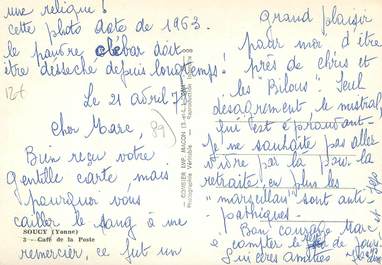 une relique !
cette photo date de 1963.
le pauvre clébar doit
être desséché depuis longtemps !
12+
Le 21 avril 7
Cher Marc, 89)
Bien reçu votre
gentille carte mais
pourquoi vous
cailler le sang à me
remercier, ce fut un
SOUCY (Yonne)
2 - Café de la Poste
COMBIER IMP. MACON (S.-et-L.)
Photographie Véritable - Reproduction
grand plaisir
pour moi d'être
près de chris et
les "Bilous". Seul
désagrément le mistral,
qui est éprouvant.
Je ne souhaite pas aller
vivre par là pour la
retraite, en plus les
"marseillais" sont anti-
pathiques.
Bon courage Marc
compter le reste de
Sincères Amitiés